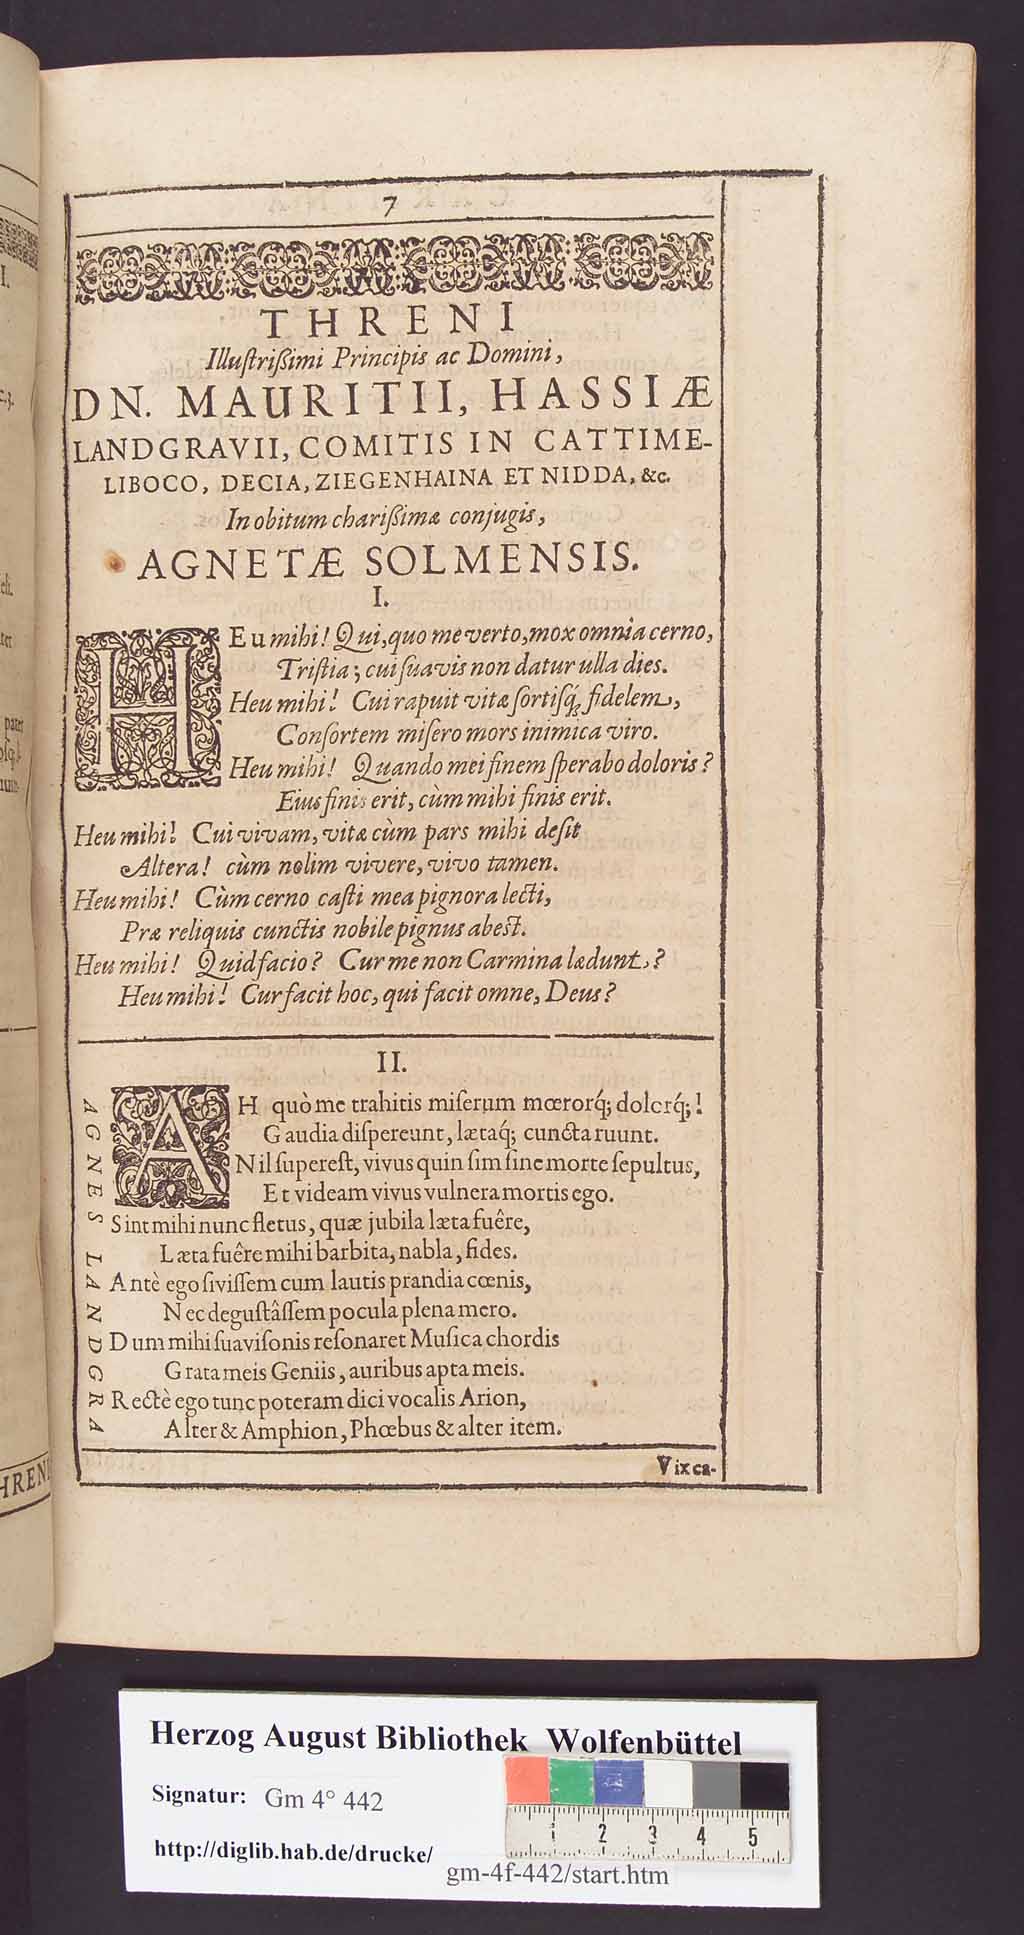 7
THRENI
Illuſtriſſimi Principis ac Domini,
DN. MAURITII, HASSIÆ
LANDGRAVII, COMITIS IN CATTIME-
LIBOCO, DECIA, ZIEGENHAINA ET NIDDA, &c.
In obitum chariſſimæ conjugis,
AGNETÆ SOLMENSIS.
I.
HEu mihi! Qui, quo me verto, mox omnia cerno,
Triſtia; cui ſuavis non datur ulla dies.
Heu mihi! Cui rapuit vitæ ſortiſq́; fidelem,
Conſortem miſero mors inimica viro.
Heu mihi! Quando mei finem ſperabo doloris?
Eius finis erit, cùm mihi finis erit.
Heu mihi! Cui vivam, vitæ cùm pars mihi deſit
Altera! cùm nolim vivere, vivo tamen.
Heu mihi! Cùm cerno caſti mea pignora lecti,
Præ reliquis cunctis nobile pignus abeſt.
Heu mihi! Quid facio? Cur me non Carmina lædunt,?
Heu mihi! Cur facit hoc, qui facit omne, Deus?
II.
AH quò me trahitis miſerum mœrorq́; dolorq́;!
Gaudia diſpereunt, lætaq́; cuncta ruunt.
Nil ſupereſt, vivus quin ſim ſine morte ſepultus,
Et videam vivus vulnera mortis ego.
Sint mihi nunc fletus, quæ jubila læta fuêre,
Læta fuêre mihi barbita, nabla, fides.
Antè ego ſiviſſem cum lautis prandia cœnis,
Nec deguſtâſſem pocula plena mero.
Dum mihi ſuaviſonis reſonaret Muſica chordis
Grata meis Geniis, auribus apta meis.
Rectè ego tunc poteram dici vocalis Arion,
Alter & Amphion, Phœbus & alter item.
AGNES LANDGRA
Vix ca-
HREN
Herzog August Bibliothek Wolfenbüttel
Signatur: Gm 4° 442
http://diglib.hab.de/drucke/
gm-4f-442/start.htm
1 2 3 4 5